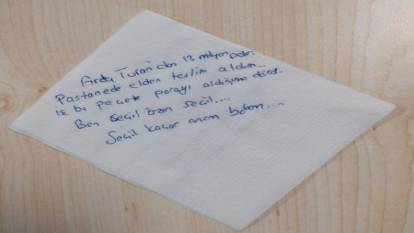 Arda Turan'dan 13 milyon Doları
Pastanede elden teslim aldım...
İş bu peçete parayı aldığıma dair.
Ben Seçil Erzan Seçil....
Seçil kaçar anam babam....